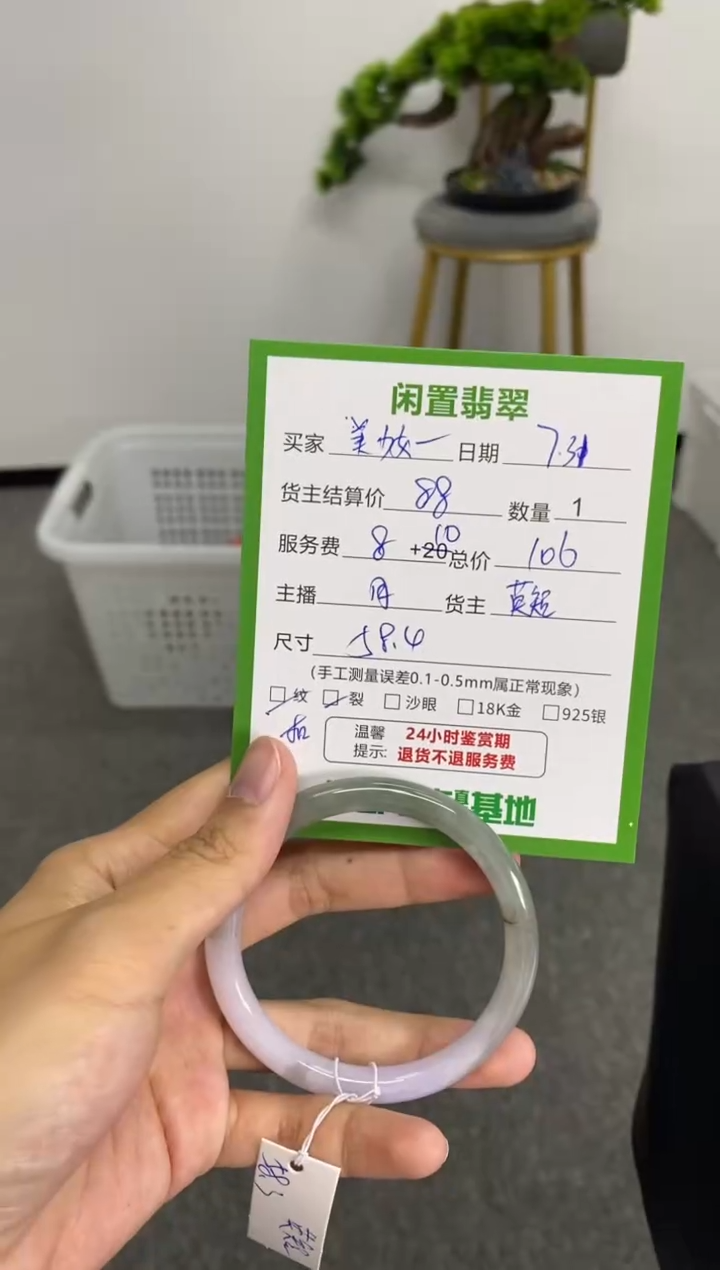 闲置翡翠
买家 美女一 日期 7.31
货主结算价 88 数量 1
服务费 8 +20 10 总价 106
主播 月 货主
尺寸 58.4
(手工测量误差0.1-0.5mm属正常现象)
□纹 □裂 □沙眼 □18K金 □925银
温馨 24小时鉴赏期
提示: 退货不退服务费
基地